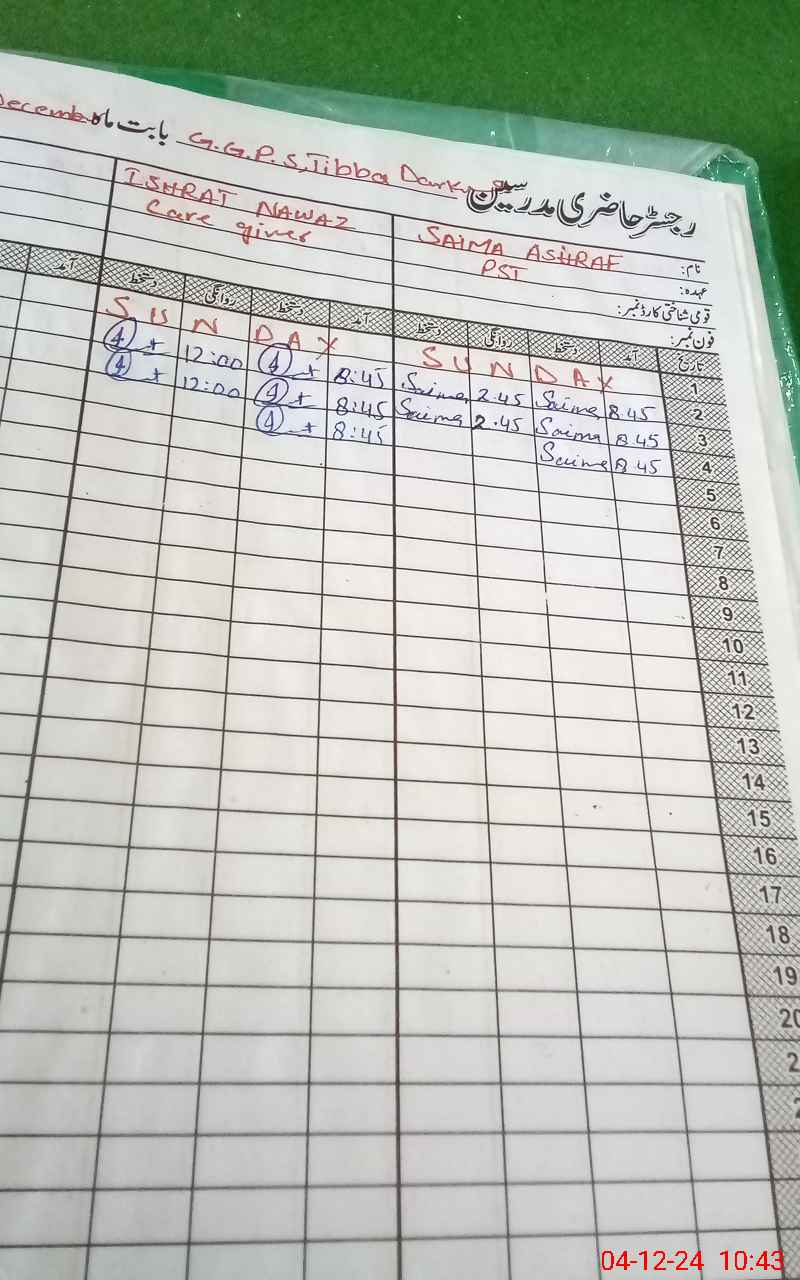 رجسٹر حاضری مدرسین G.G.P.S, Tibba Dark بابت ماہ Decemb
نام: SAIMA ASHRAF ISHRAT NAWAZ
عہدہ: PST Care giver
قومی شناختی کارڈ نمبر:
فون نمبر:
تاریخ آمد دستخط روانگی دستخط آمد دستخط روانگی دستخط آمد
1 SUNDAY SUNDAY
2 8.45 Saima 2.45 Saima 8:45 12:00
3 8.45 Saima 2.45 Saima 8:45 12:00
4 8.45 Saima 8:45
5
6
7
8
9
10
11
12
13
14
15
16
17
18
19
20
04-12-24 10:43